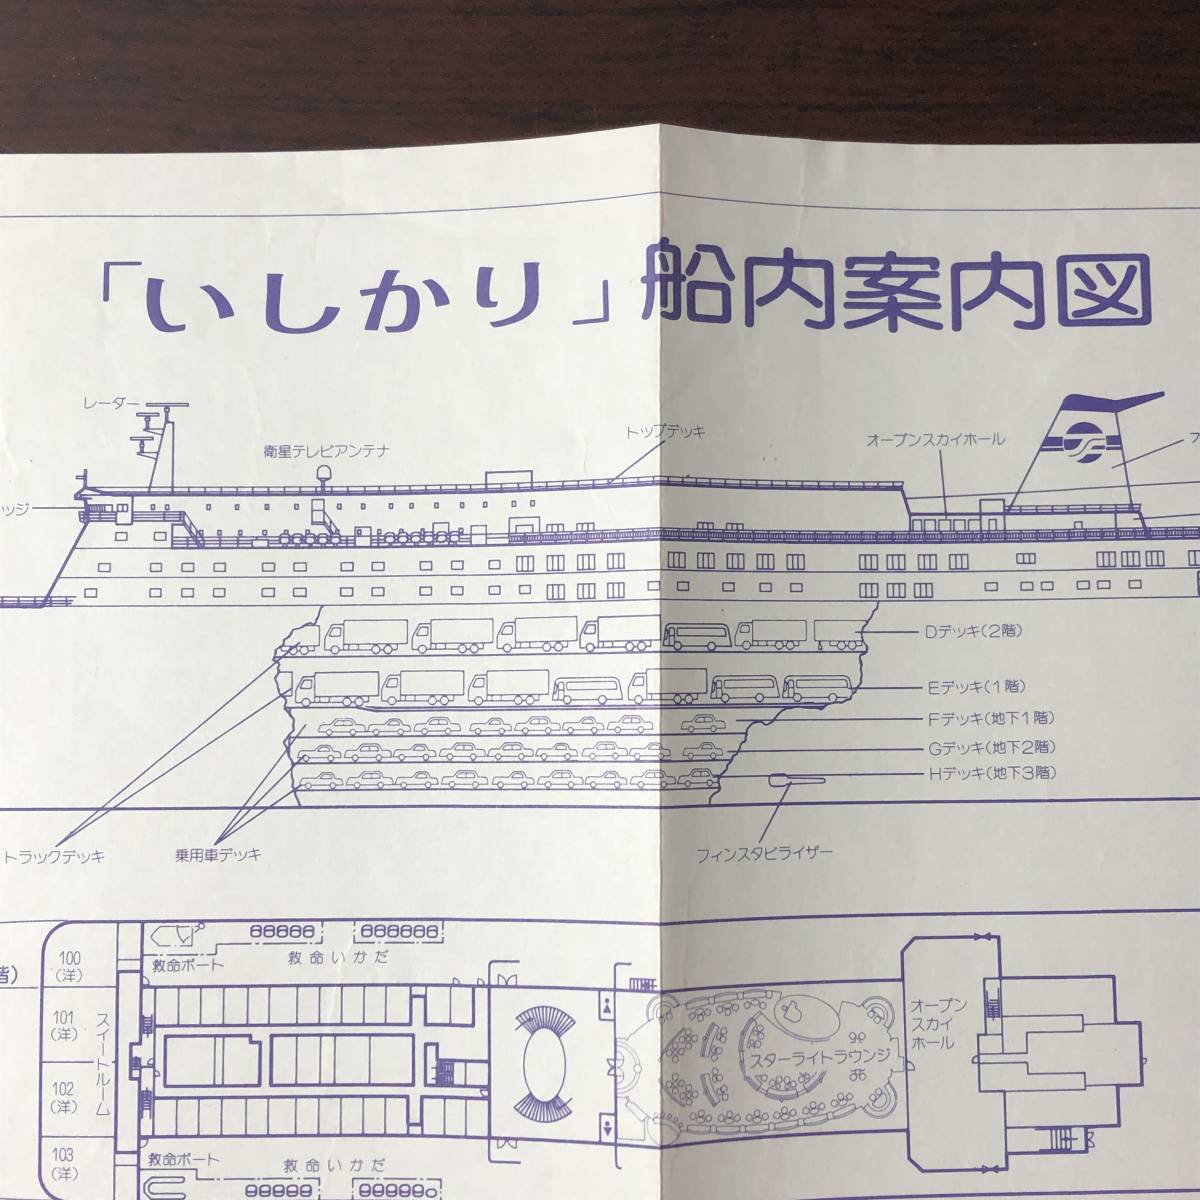 「いしかり」船内案内図
レーダー
衛星テレビアンテナ
トップデッキ
オープンスカイホール
フ
ッジ
Dデッキ(2階)
Eデッキ(1階)
Fデッキ(地下1階)
Gデッキ(地下2階)
Hデッキ(地下3階)
トラックデッキ
乗用車デッキ
フィンスタビライザー
階)
100
(洋)
101
(洋)
102
(洋)
103
(洋)
スイートルーム
救命ボート
救命いかだ
スターライトラウンジ
オープン
スカイ
ホール
救命ボート
救命いかだ